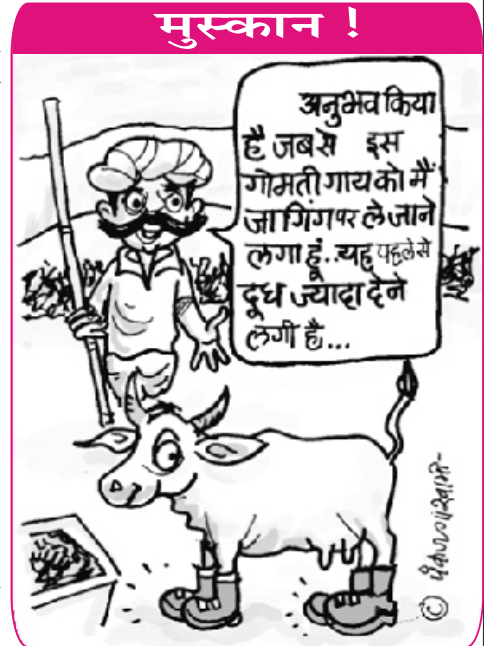 मुस्कान !
अनुभव किया
है जब से इस
गोमती गाय को मैं
जागिंग पर ले जाने
लगा हूं..यह पहले से
दूध ज्यादा देने
लगी है...
©